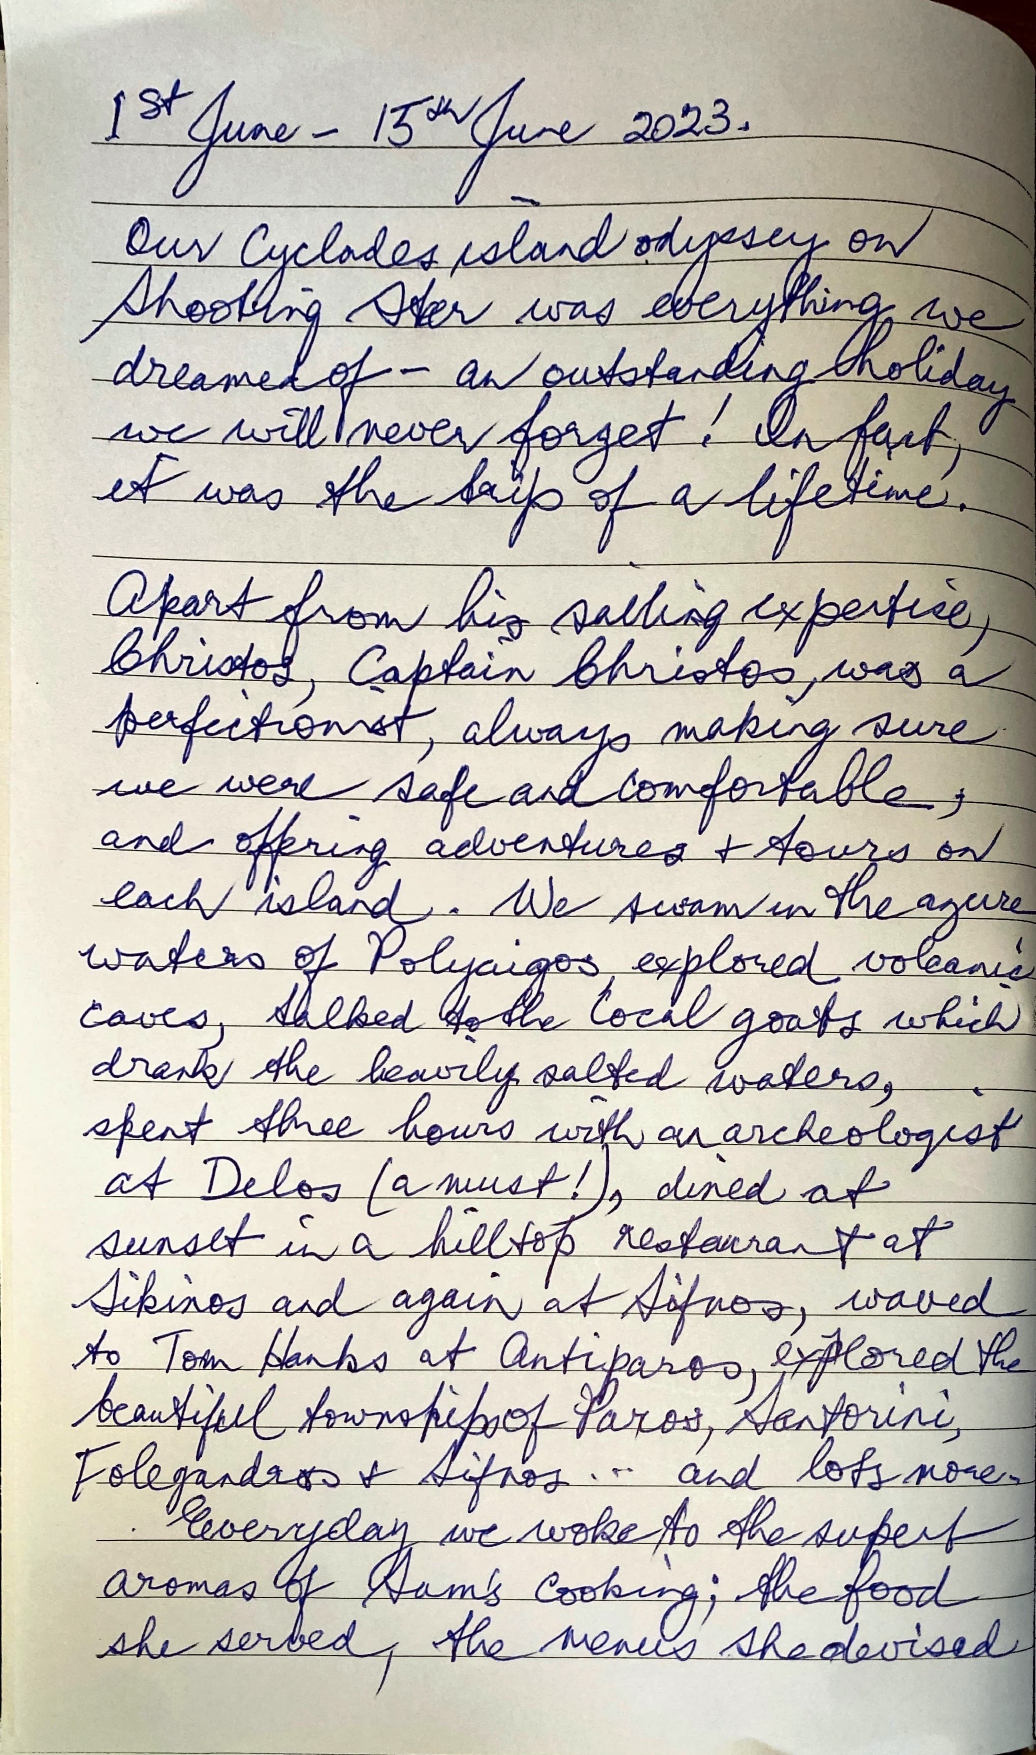 1st June - 15th June 2023.
Our Cyclades island odyssey on
Shooting Star was everything we
dreamed of - an outstanding holiday
we will never forget! In fact,
it was the trip of a lifetime.
Apart from his sailing expertise,
Christos, Captain Christos, was a
perfectionist, always making sure
we were safe and comfortable,
and offering adventures + tours on
each island. We swam in the azure
waters of Polyaigos, explored volcanic
caves, talked to the local goats which
drank the heavily salted waters,
spent three hours with an archeologist
at Delos (a must!), dined at
sunset in a hilltop restaurant at
Sikinos and again at Sifnos, waved
to Tom Hanks at Antiparos, explored the
beautiful townships of Paros, Santorini,
Folegandros + Sifnos ... and lots more.
Everyday we woke to the superb
aromas of Sam's cooking; the food
she served, the menus she devised